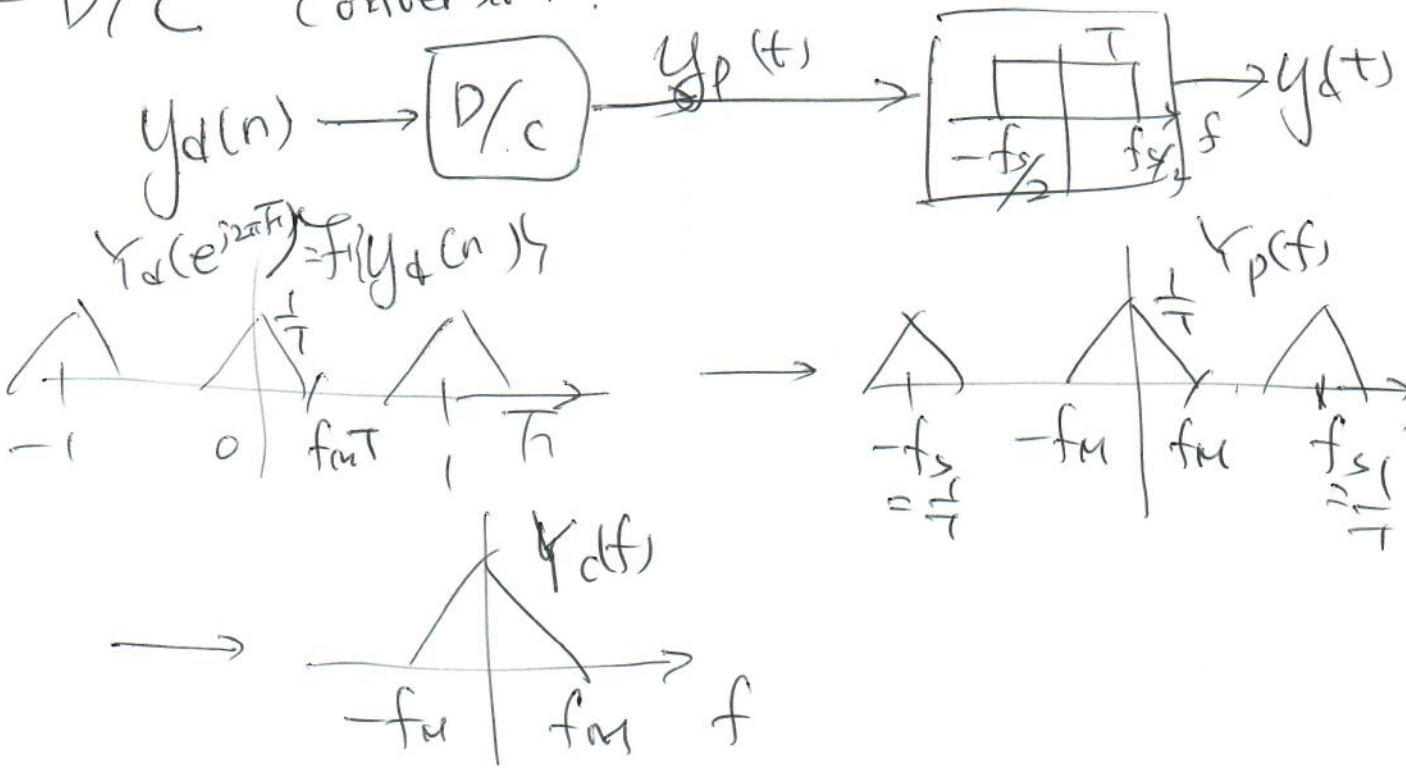 D/C Conversion.
yd(n) → D/C → yp(t) → T -fs/2 fs/2 f → yc(t)
Yd(e^{j2πf̄}) = F{yd(n)}
1/T
-1 0 fMT 1 f̄
Yp(f)
1/T
-fs = 1/T -fM fM fs = 1/T
Yc(f)
-fM fM f